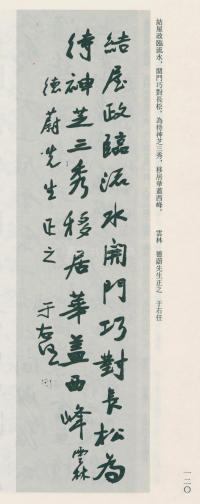 結屋政臨流水，開門巧對長松，為待神芝三秀，移居華蓋西峰。　雲林　德蔚先生正之　于右任
結屋政臨流水開門巧對長松為
待神芝三秀移居華蓋西峰雲林
德蔚先生正之
于右任
一二〇